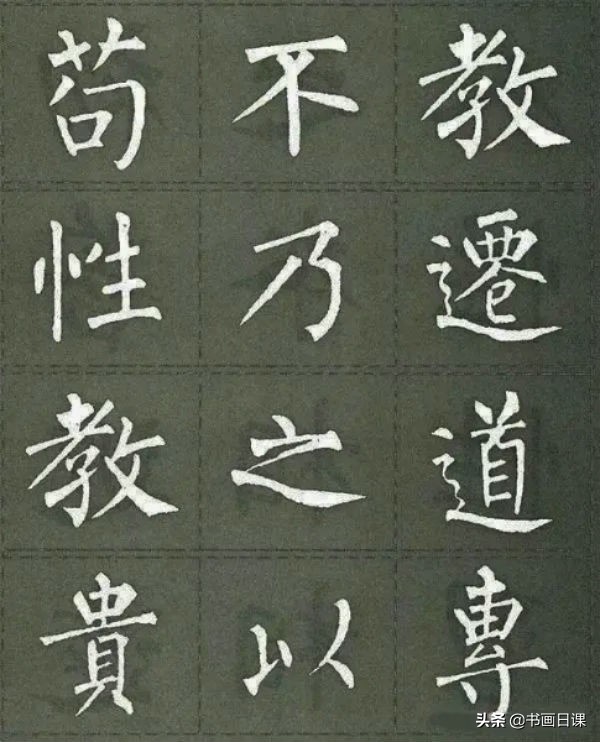 苟不教
性乃遷
教之道
貴以專
头条 @书画日课